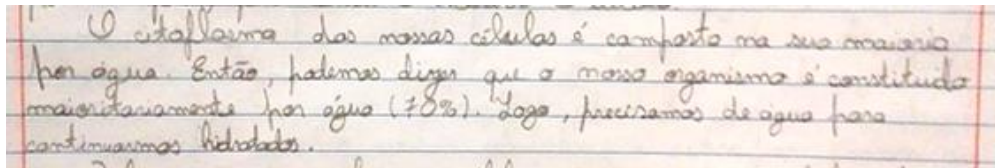 O citoplasma das nossas células é composto na sua maioria
por água. Então, podemos dizer que o nosso organismo é constituído
maioritariamente por água (70%). Logo, precisamos de água para
continuarmos hidratados.